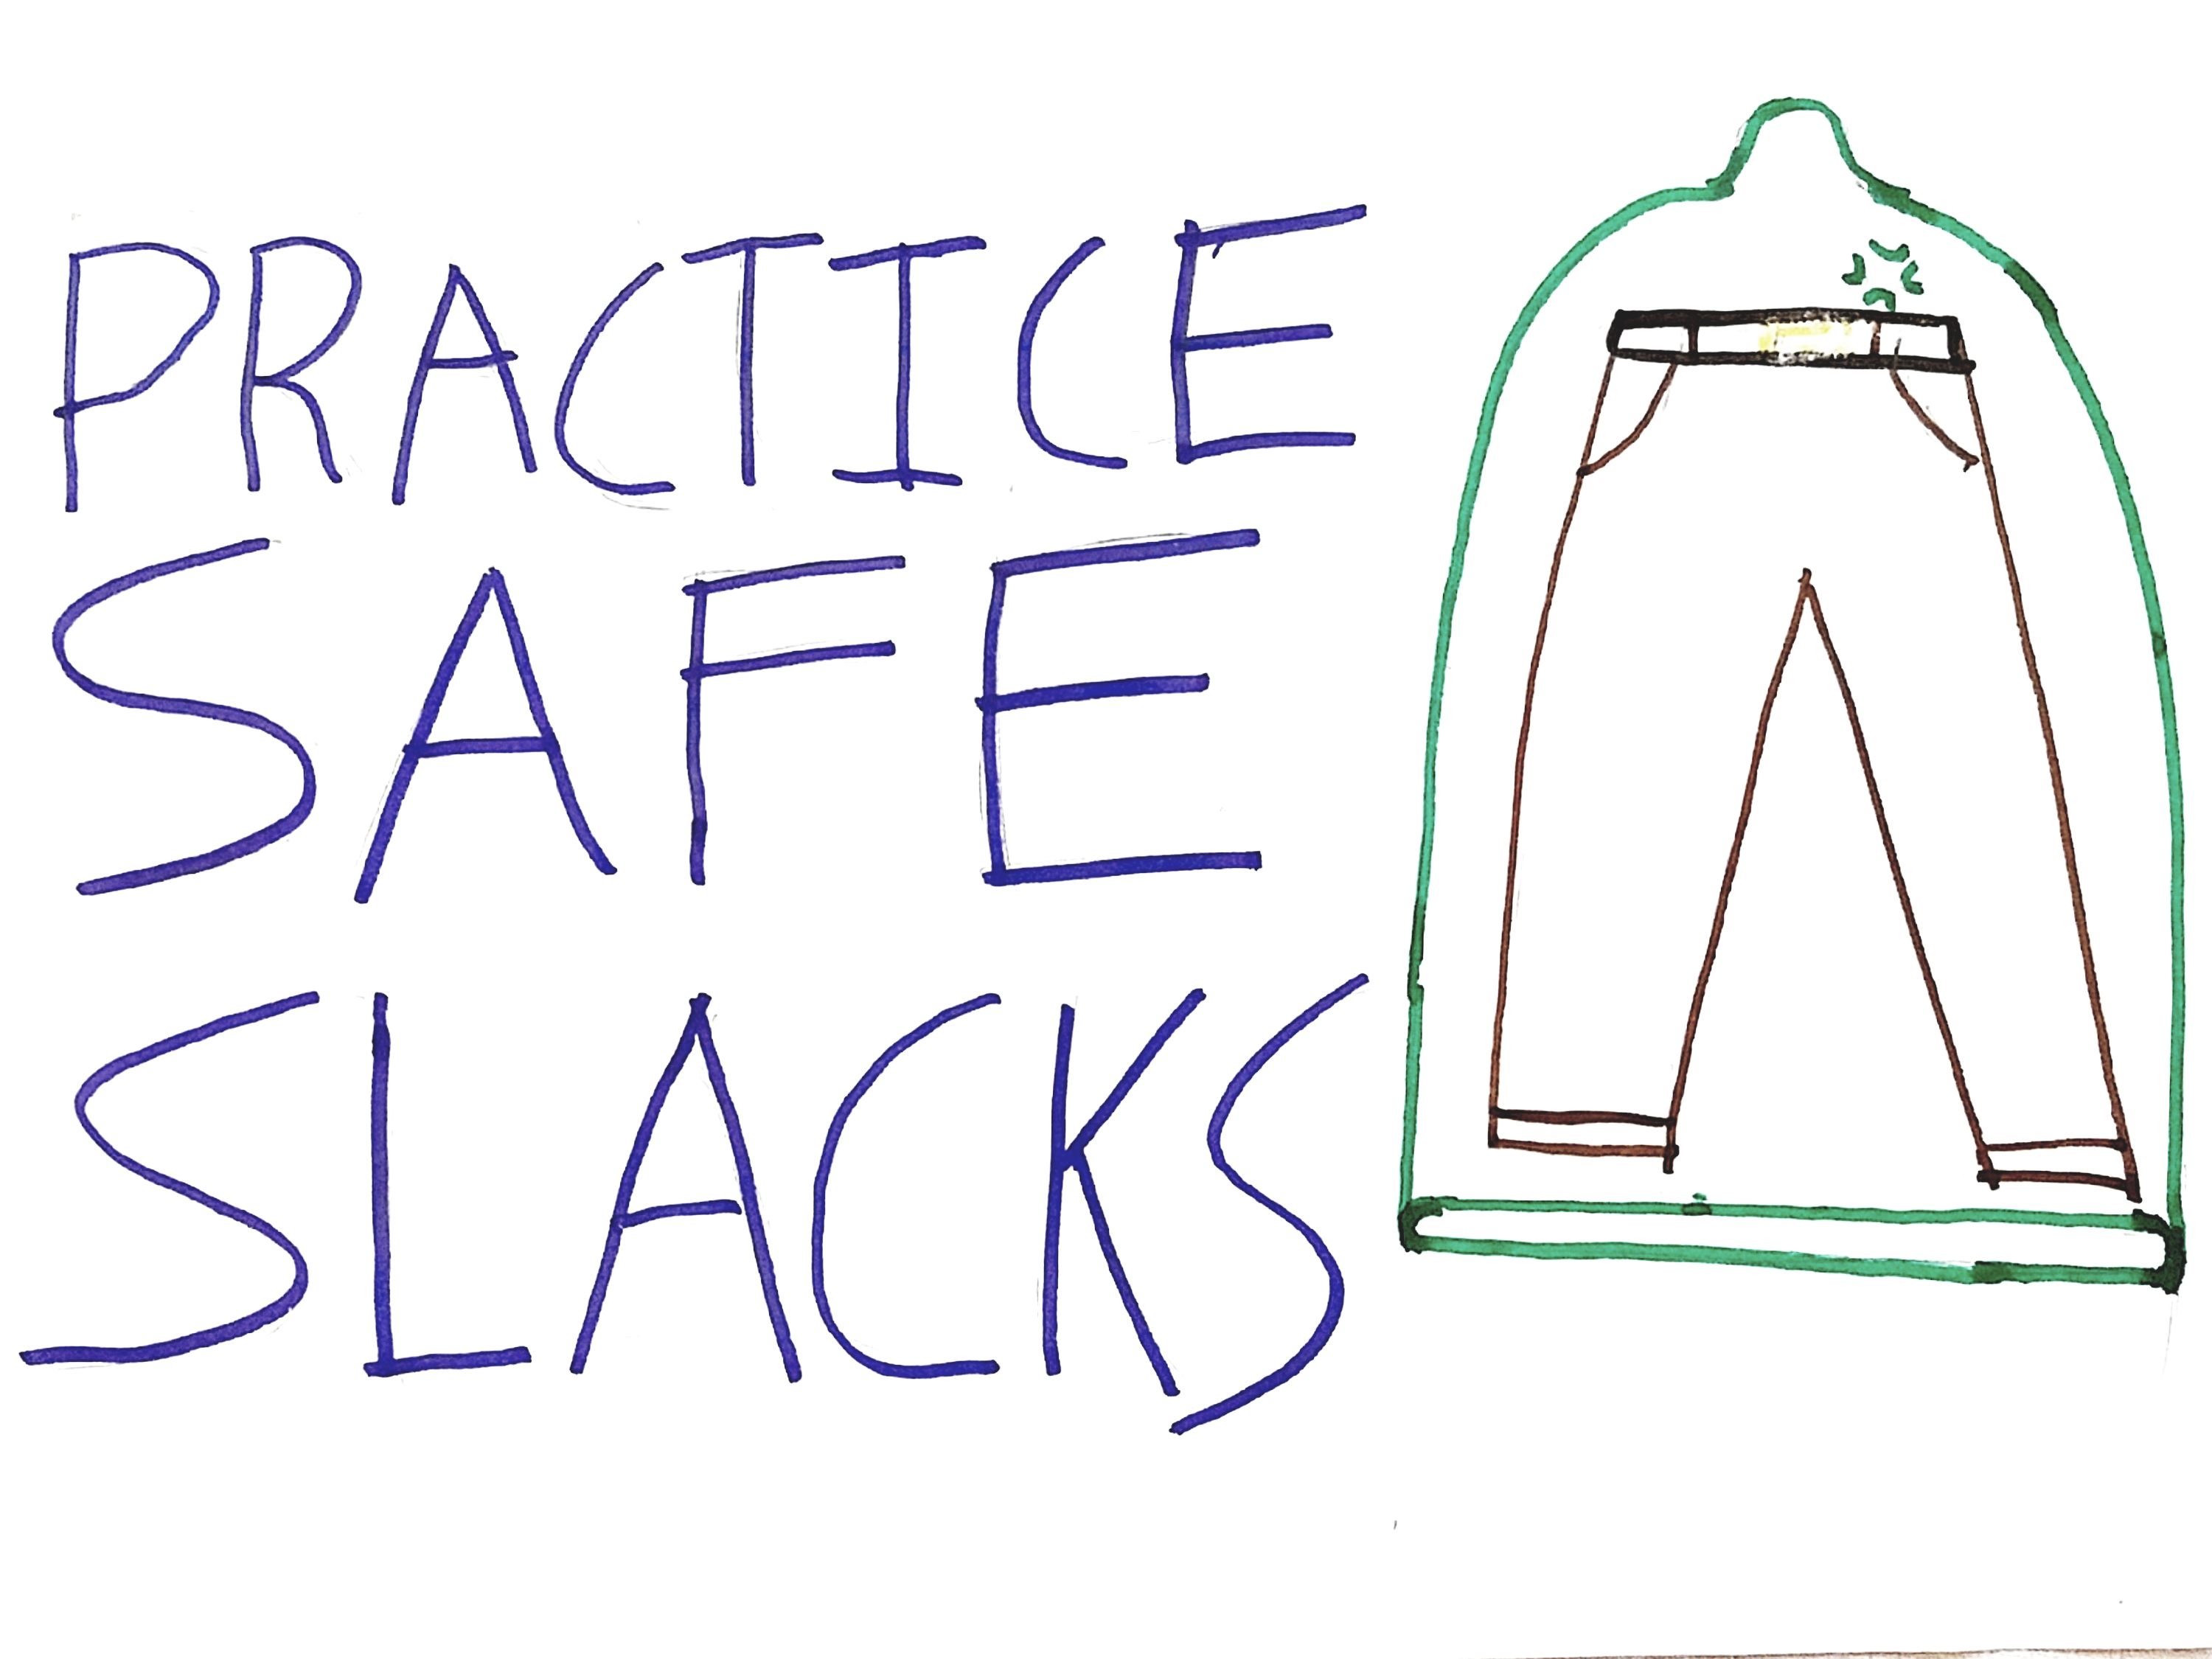 PRACTICE
SAFE
SLACKS